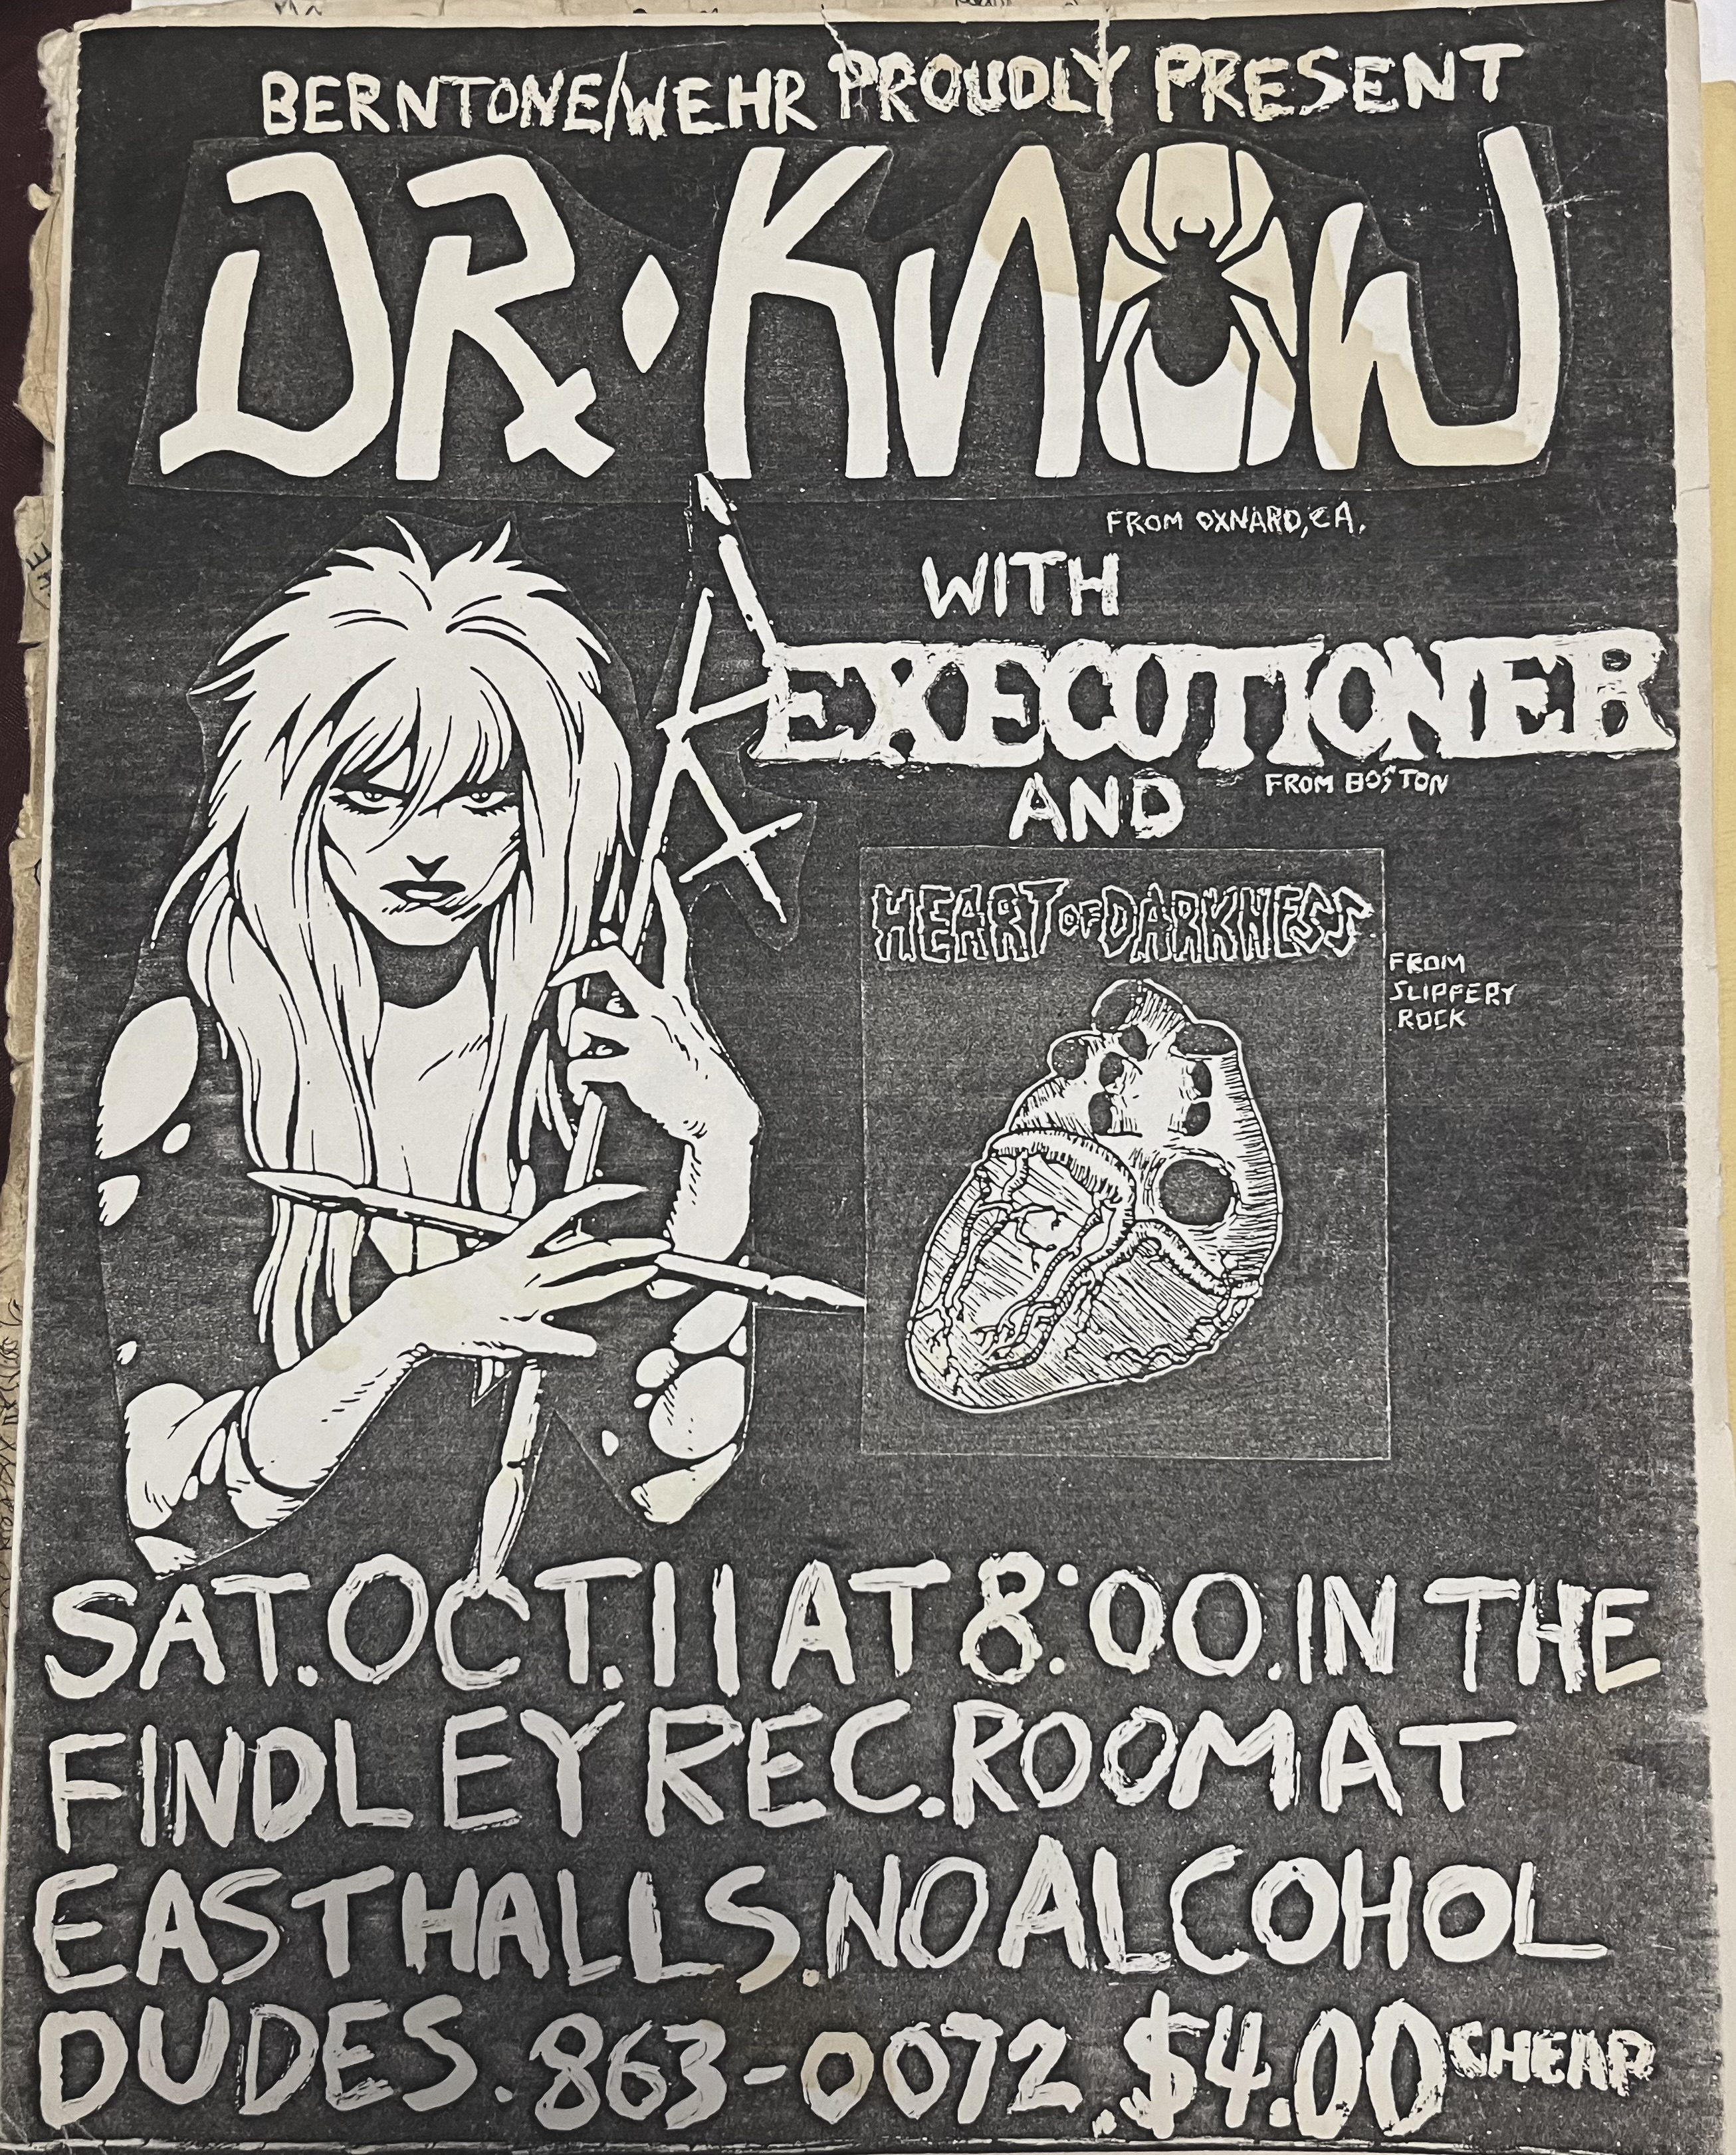 BERNTONE/WEHR PROUDLY PRESENT
DR. KNOW
FROM OXNARD, CA.
WITH
EXECUTIONER
FROM BOSTON
AND
HEART OF DARKNESS
FROM
SLIPPERY
ROCK
SAT. OCT. 11 AT 8:00. IN THE
FINDLEY REC. ROOM AT
EAST HALLS. NO ALCOHOL
DUDES. 863-0072. $4.00 CHEAP